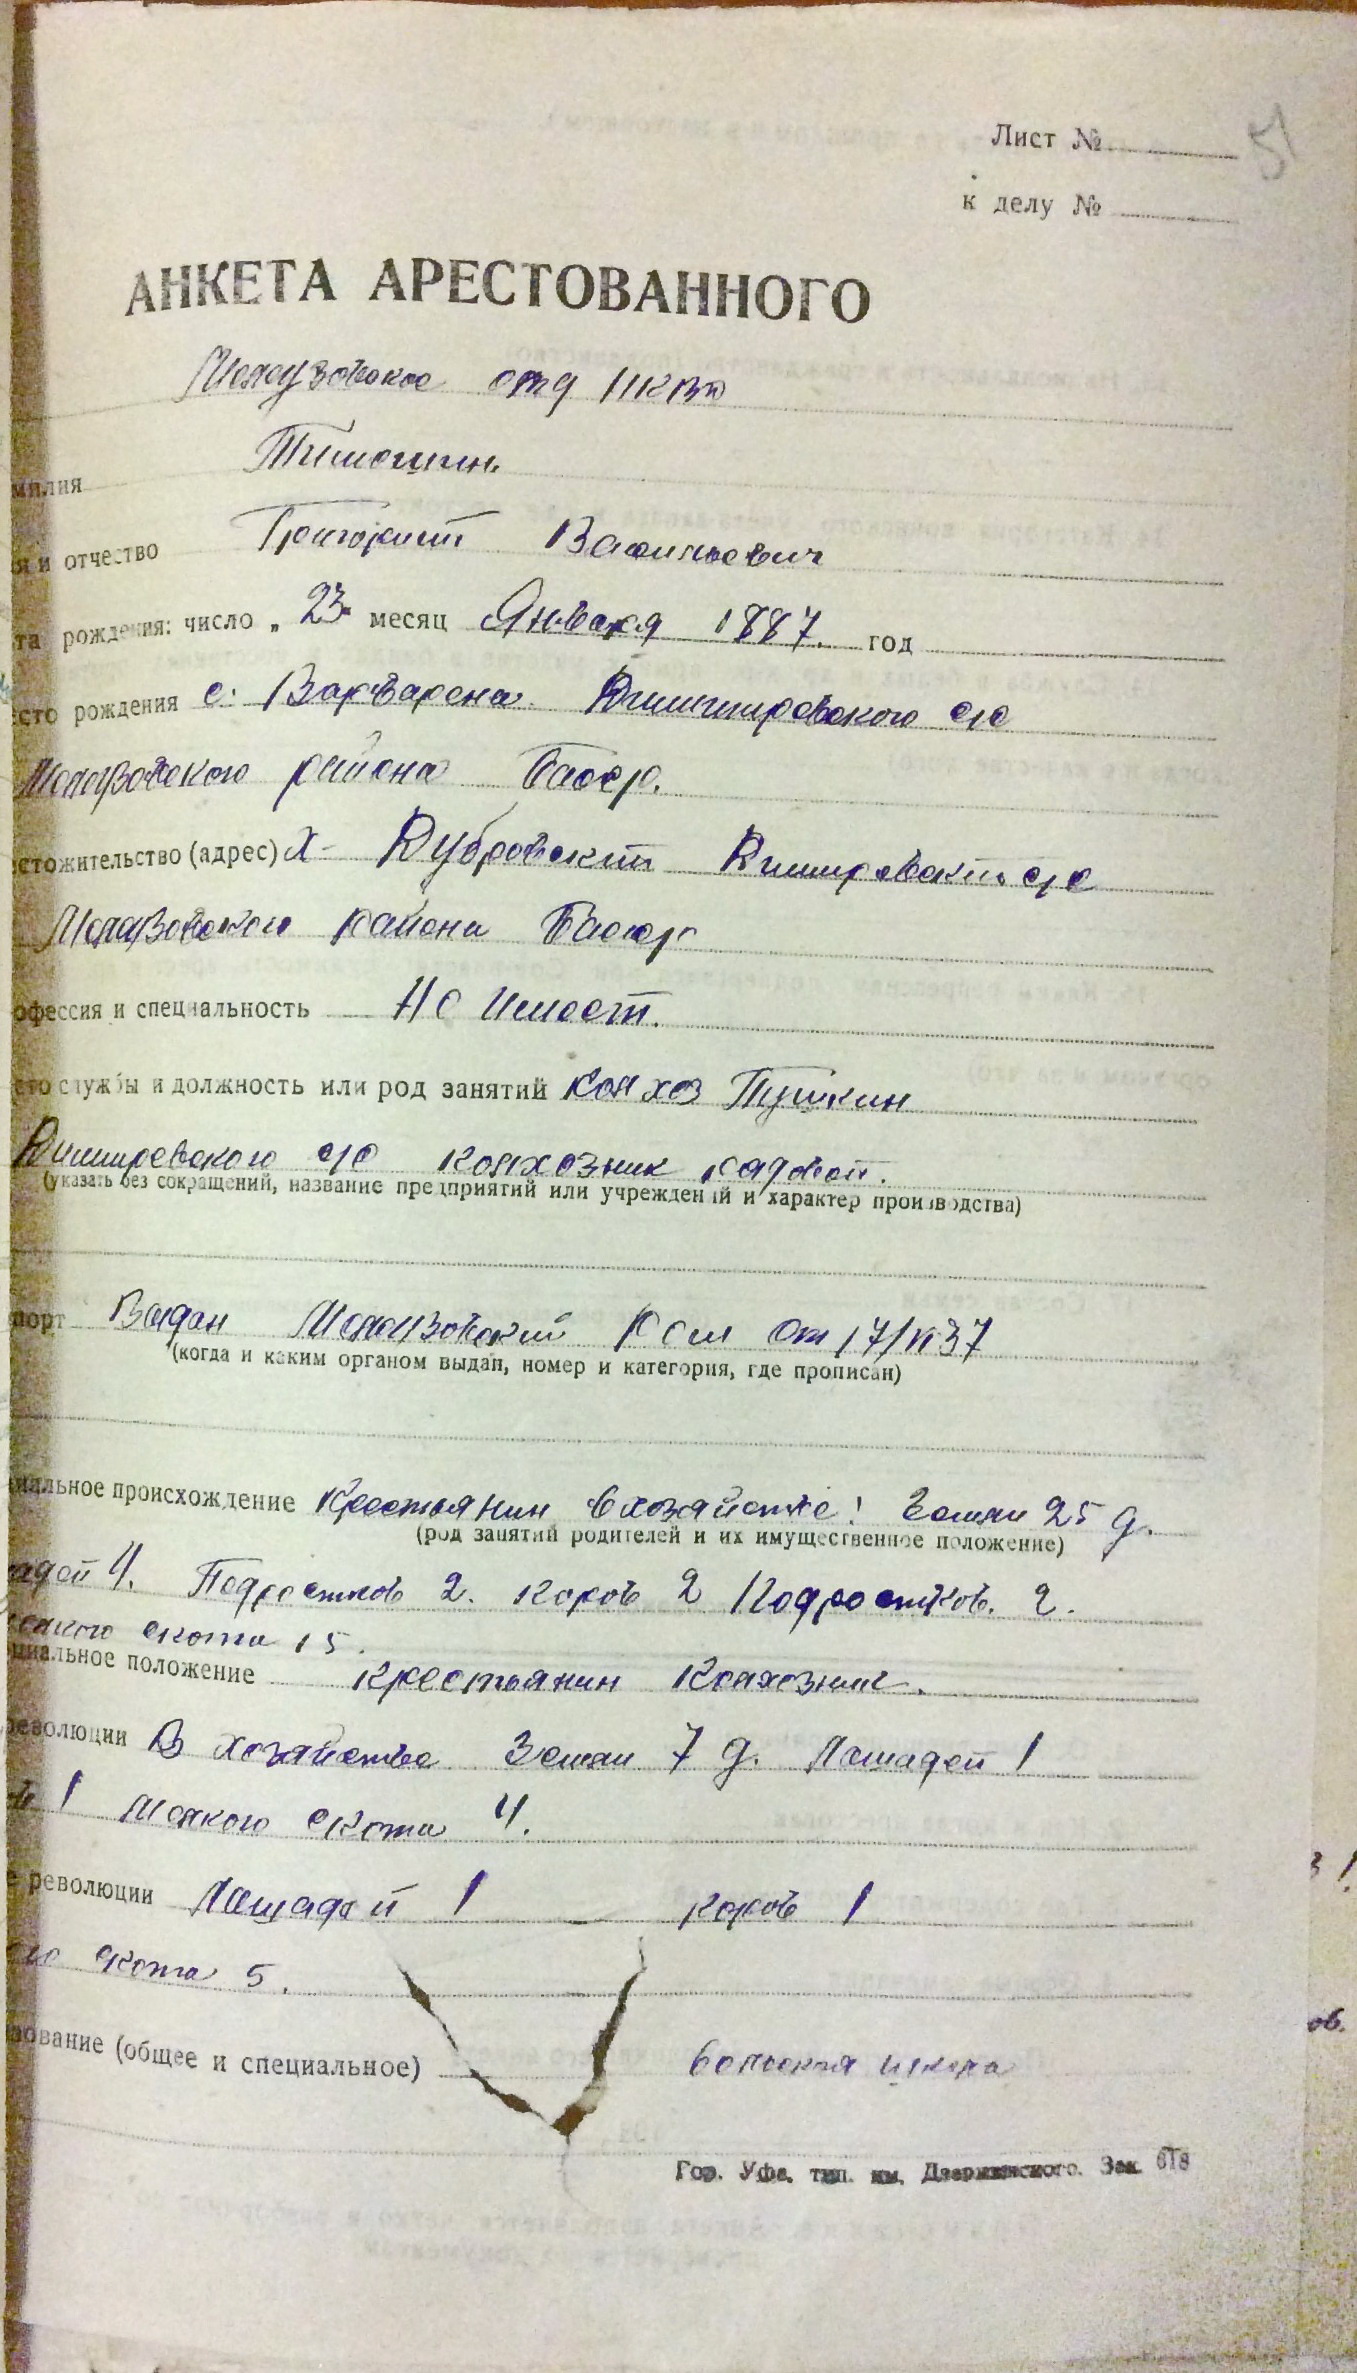 Лист №
51
к делу №
АНКЕТА АРЕСТОВАННОГО
Мелеузовское отд НКВД
милия Тимошин
я и отчество Григорий Васильевич
та рождения: число „ 23 месяц Января 1887. год
сто рождения с. Варварена с/с
Мелеузовского района Башср.
стожительство (адрес) х- Дубровский с/с
Мелеузовского района Башср
офессия и специальность Не имеет.
сто службы и должность или род занятий колхоз Пушкин
с/с колхозник рядовой.
(указать без сокращений, название предприятий или учреждений и характер производства)
порт Выдан Мелеузовский от 17/
37
(когда и каким органом выдан, номер и категория, где прописан)
иальное происхождение Крестьянин в хозяйстве: Земли 25 д.
(род занятий родителей и их имущественное положение)
адей 4. Подростков 2. Коров 2 Подростков. 2.
скота 15.
циальное положение крестьянин Колхозник.
революции В хозяйстве Земли 7 д. Лошадей 1
1 Мелкого скота 4.
е революции Лошадей 1 коров 1
го скота 5.
зование (общее и специальное) сельская школа
Гор. Уфа, тип. им. Дзержинского. Зак. 618